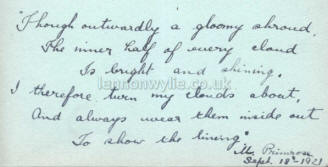 "Though outwardly a gloomy shroud,
The inner half of every cloud
Is bright and shining,
lennonwylie.co.uk
I therefore turn my clouds about,
And always wear them inside out
To show the lining"
M. Primrose
Sept. 18th 1921